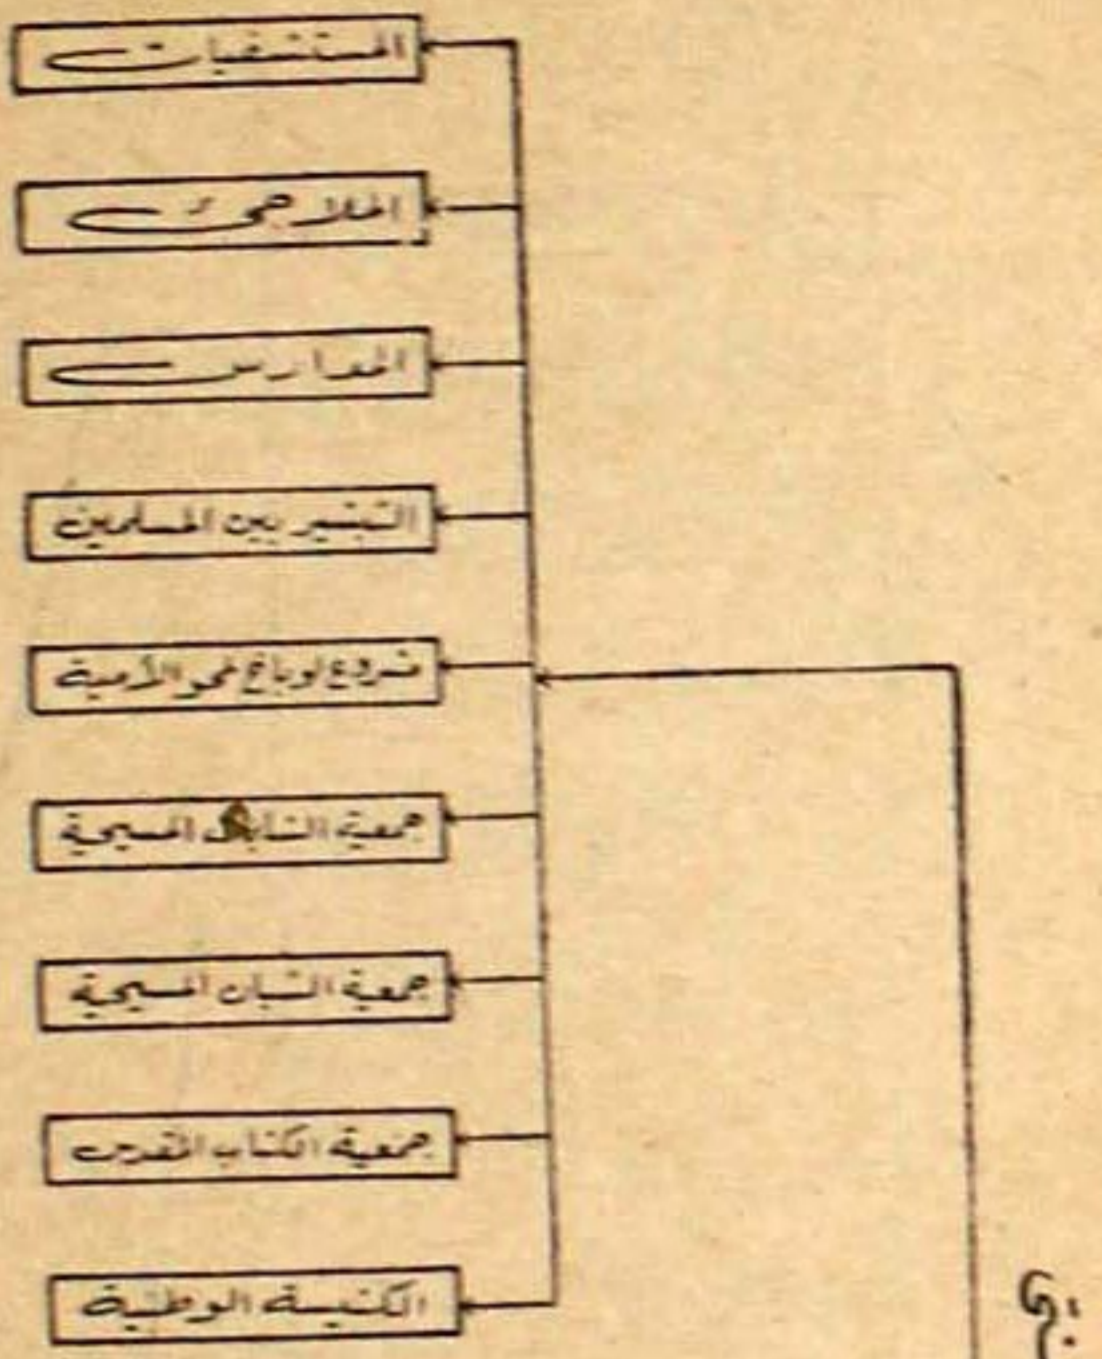 المستشفيات
الملاجئ
المدارس
التبشير بين المسلمين
مشروع لوباخ لمحو الأمية
جمعية الشابات المسيحية
جمعية الشبان المسيحية
جمعية الكتاب المقدس
الكنيسة الوطنية